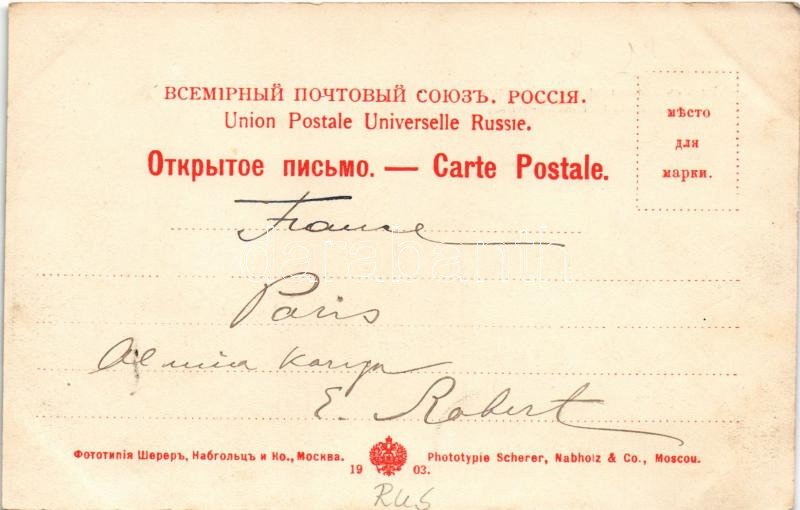 ВСЕМІРНЫЙ ПОЧТОВЫЙ СОЮЗЪ. РОССІЯ.
Union Postale Universelle Russie.
Открытое письмо. — Carte Postale.
мѣсто
для
марки.
France
Paris
E. Robert
Фототипія Шереръ, Набгольцъ и Ко., Москва.
1903.
Phototypie Scherer, Nabholz & Co., Moscou.
RUS